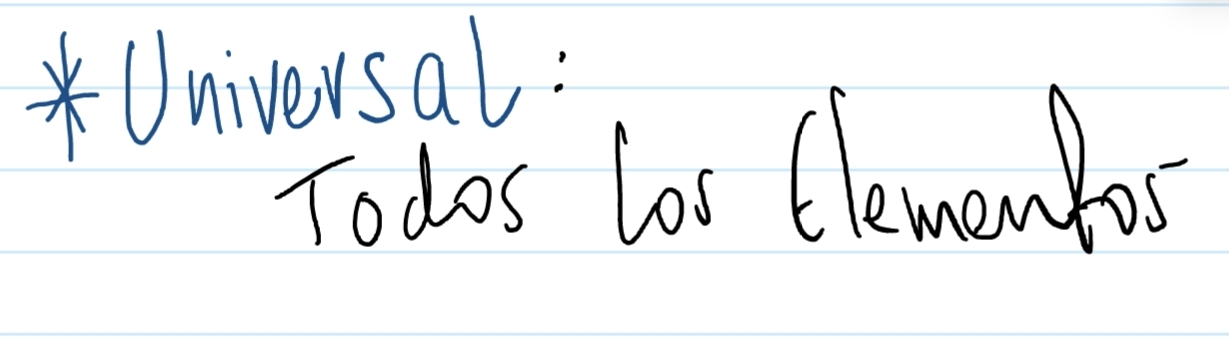 * Universal:
Todos los Elementos